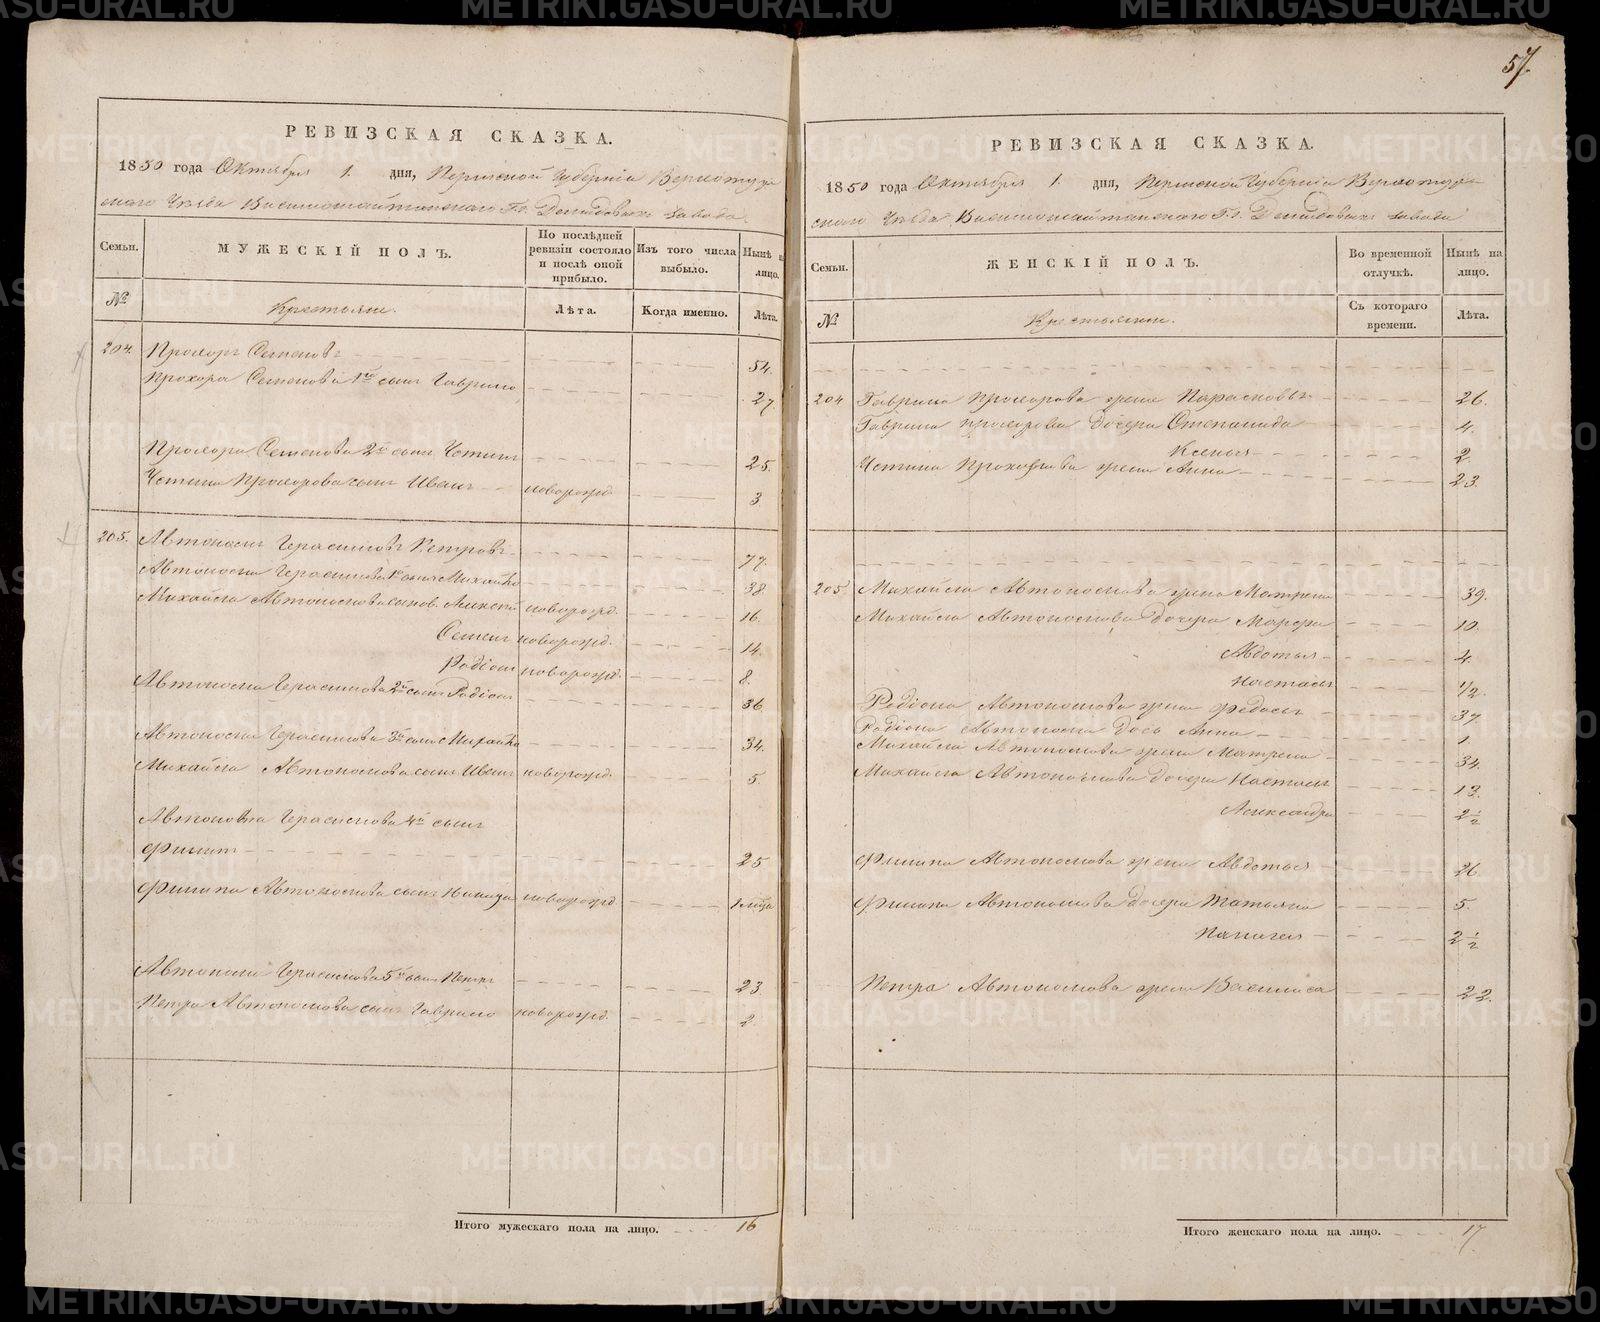 57.
РЕВИЗСКАЯ СКАЗКА.
1850 года Октября 1. дня, Пермской Губернiи Верхотур
скаго Уѣзда Висимошайтанскаго Гг. Демидовыхъ завода
Семьи.
МУЖЕСКIЙ ПОЛЪ.
По послѣдней ревизiи состояло и послѣ оной прибыло.
Изъ того числа выбыло.
Нынѣ на лицо.
№
Крестьяне.
Лѣта.
Когда именно.
Лѣта.
204. Прохоръ Семеновъ 54.
Прохора Семенова 1й сынъ Гаврило 27.
Прохора Семенова 2й сынъ Устинъ 25.
Устина Прохорова сынъ Иванъ новорожд. 3
205. Автономъ Герасимовъ Петровъ 77.
Автонома Герасимова 1й сынъ Михайло 38.
Михайла Автономова сынов. Алексѣй новорожд. 16.
Семенъ новорожд. 14.
Радiонъ новорожд. 8.
Автонома Герасимова 2й сынъ Радiонъ 36
Автонома Герасимова 3й сынъ Михайло 34.
Михайла Автономова сынъ Иванъ новорожд. 5.
Автонома Герасимова 4й сынъ
Филипъ 25
Филипа Автономова сынъ новорожд 1 мѣца
Автонома Герасимова 5й сынъ Петръ 23.
Петра Автономова сынъ Гаврило новорожд. 2
Итого мужескаго пола на лицо. 16
РЕВИЗСКАЯ СКАЗКА.
1850 года Октября 1. дня, Пермской Губернiи Верхотур
скаго Уѣзда Висимошайтанскаго Гг. Демидовыхъ завода
Семьи.
ЖЕНСКIЙ ПОЛЪ.
Во временной отлучкѣ.
Нынѣ на лицо.
№
Крестьянки.
Съ котораго времени.
Лѣта.
204 Гаврила Прохорова жена Парасковья 26.
Гаврила Прохорова дочери Степанида 4.
Ксенья 2.
Устина Прохорова жена Анна 23.
205. Михайла Автономова жена Матрена 39.
Михайла Автономова дочери Марфа 10.
Авдотья 4.
Настасья 1/2.
Радiона Автономова жена Федосья 37
Радiона Автонома дочь Анна 1
Михайла Автономова жена Матрена 34.
Михайла Автономова дочери Настасья 13.
Александра 2 1/2
Филипа Автономова жена Авдотья 26.
Филипа Автономова дочери Татьяна 5.
Палагея 2 1/2
Петра Автономова жена Василиса 22.
Итого женскаго пола на лицо. 17
METRIKI.GASO-URAL.RU